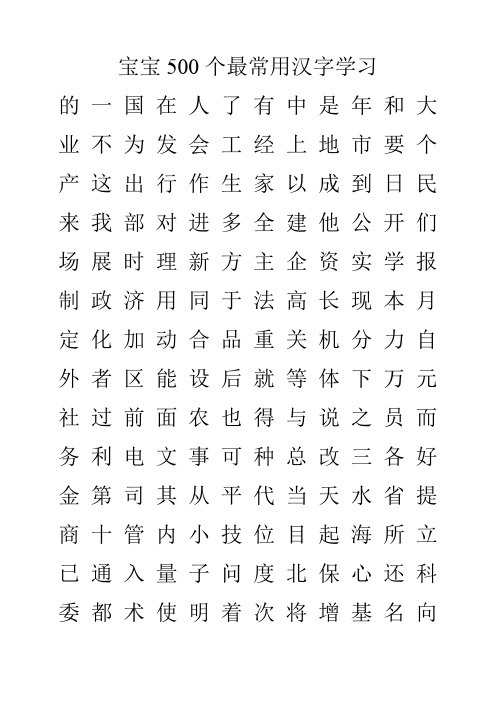 宝宝 500 个最常用汉字学习
的 一 国 在 人 了 有 中 是 年 和 大
业 不 为 发 会 工 经 上 地 市 要 个
产 这 出 行 作 生 家 以 成 到 日 民
来 我 部 对 进 多 全 建 他 公 开 们
场 展 时 理 新 方 主 企 资 实 学 报
制 政 济 用 同 于 法 高 长 现 本 月
定 化 加 动 合 品 重 关 机 分 力 自
外 者 区 能 设 后 就 等 体 下 万 元
社 过 前 面 农 也 得 与 说 之 员 而
务 利 电 文 事 可 种 总 改 三 各 好
金 第 司 其 从 平 代 当 天 水 省 提
商 十 管 内 小 技 位 目 起 海 所 立
已 通 入 量 子 问 度 北 保 心 还 科
委 都 术 使 明 着 次 将 增 基 名 向